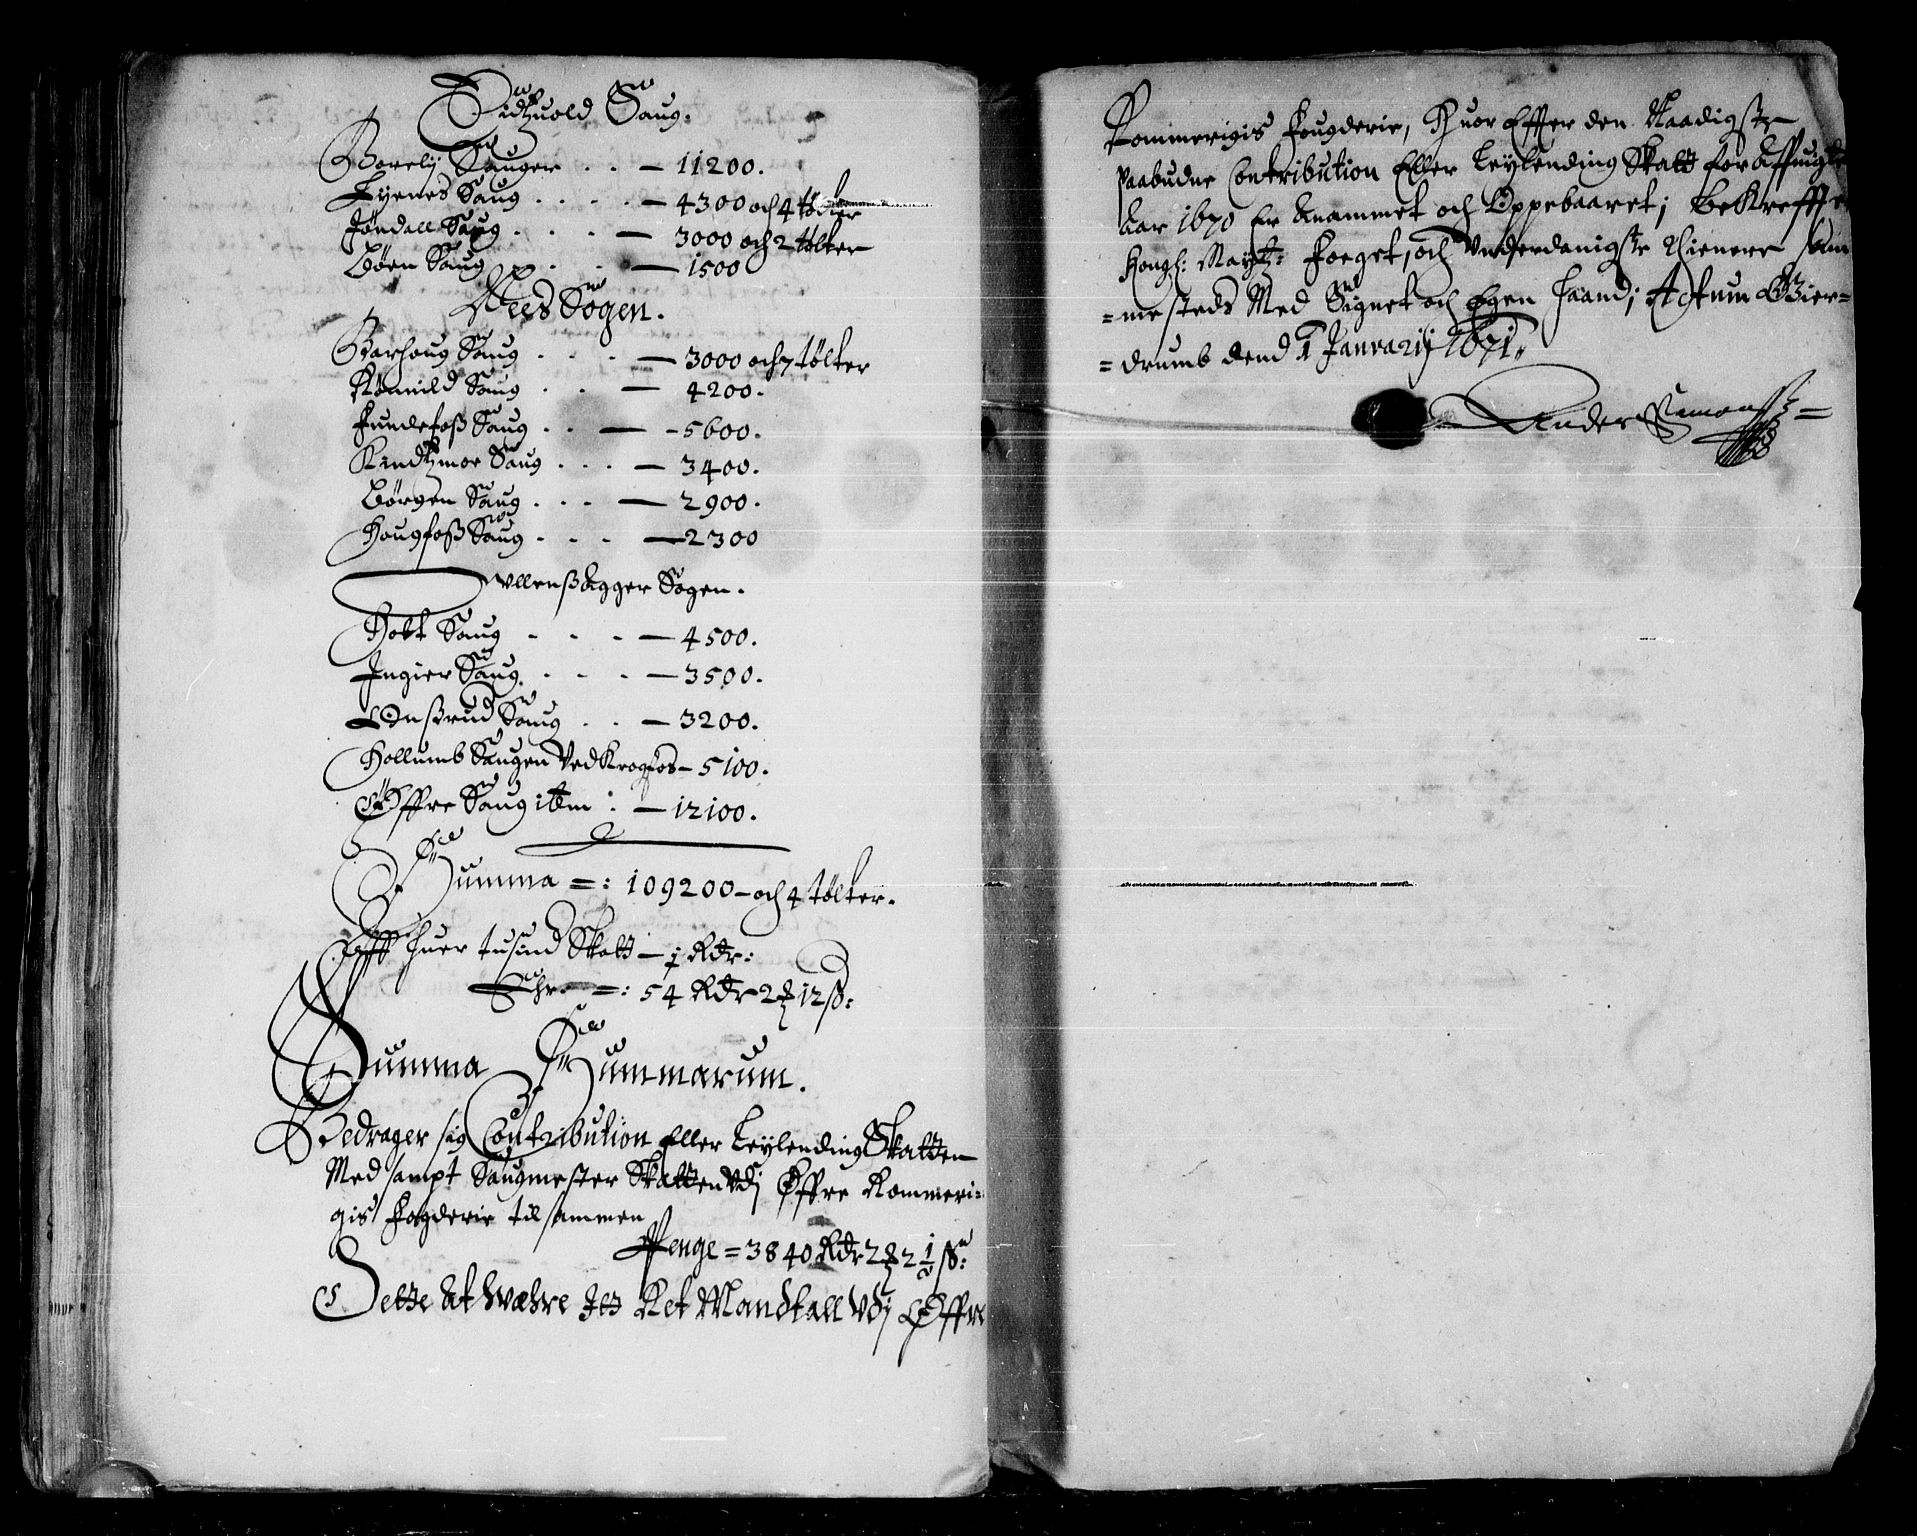 Eidtzuold Saug.
Borelij Sauger . . — 11200.
Byenes Saug . . . . — 4300 och 4 tølter
Jøndall Saug . . . — 3000 och 2 tølter
Bøen Saug . . — 1500
Nees Sogen.
Barhoug Saug . . . — 3000 och 7 tølter
Rømild Saug . . — 4200.
Fundefoß Saug . . — 5600.
Kindtzmor Saug . . . — 3400.
Børgen Saug . . . — 2900.
Hougfoß Saug . . . — 2300
Ullensßagger Sogen.
Holt Saug . . . — 4500.
Ingier Saug . . . — 3500.
Onßrud Saug . . — 3200.
Hollumb Saugen Ved Krogfos — 5100.
Øffre Saug item : — 12100.
Summa =: 109200 — och 4 tølter.
Aff huer tusind Skatt — ½ Rdr:
Ehr =: 54 Rdr 2 ℥ 12 ß:
Summa Summarum.
Bedrager sig Contribution Eller Leylending Skatten
Med sampt Saugmester Skatten Udj Øffre Rommeri=
gis Fogderie til sammen
Penge = 3840 Rdr 2 ℥ 2 ½ ß:
Dette at Wæhre Itt Ret Mandtall Udj Øffre
Rommerigis Fougderie, Huor Effter den Naadigste
Paabudne Contribution Eller Leylending Skatt for Affuigte
Aar 1670 Er Anammet och Oppebaaret; Bekreffter
Kongl: Mayttz: Foeget, och Underdanigste Thienere sam
=mesteds Med Signet och Egen Haand; Actum Gier=
=drumb dend 1 Januarij 1671,,
Anders Simonßz =